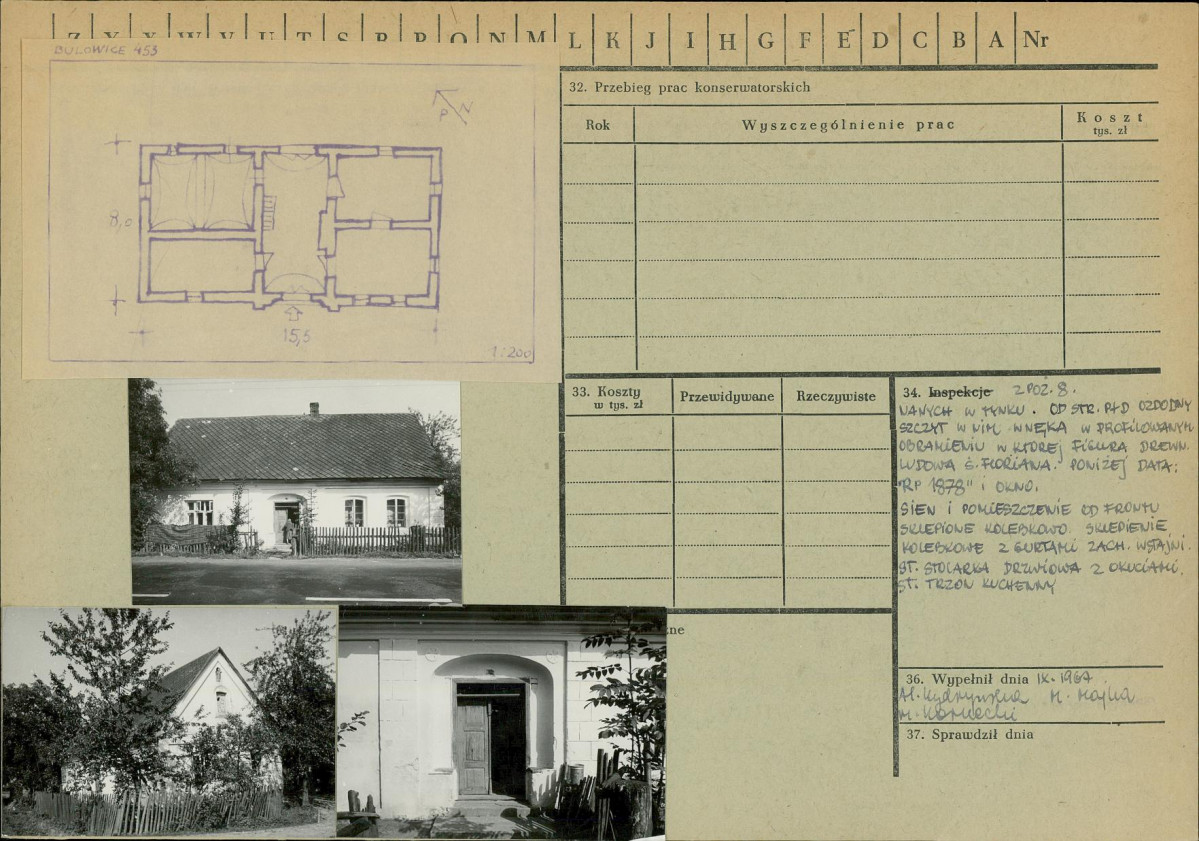 Z Y X W V U T S R P O N M L K J I H G F E D C B A Nr
BULOWICE 453
P N
8,0
15,5
1:200
32. Przebieg prac konserwatorskich
Rok
Wyszczególnienie prac
Koszt
tys. zł
33. Koszty
w tys. zł
Przewidywane
Rzeczywiste
34. Inspekcje Z POZ. 8.
WANYCH W TYNKU. OD STR. PŁD OZDOBNY
SZCZYT W NIM WNĘKA W PROFILOWANYM
OBRAMIENIU W KTÓREJ FIGURA DREWN.
LUDOWA Ś. FLORIANA. PONIŻEJ DATA:
"RP 1878" i OKNO.
SIEŃ I POMIESZCZENIE OD FRONTU
SKLEPIONE KOLEBKOWO. SKLEPIENIE
KOLEBKOWE Z GURTAMI ZACH. W STAJNI.
ST. STOLARKA DRZWIOWA Z OKUCIAMI.
ST. TRZON KUCHENNY
zne
36. Wypełnił dnia IX. 1967
M. Kornecki
37. Sprawdził dnia